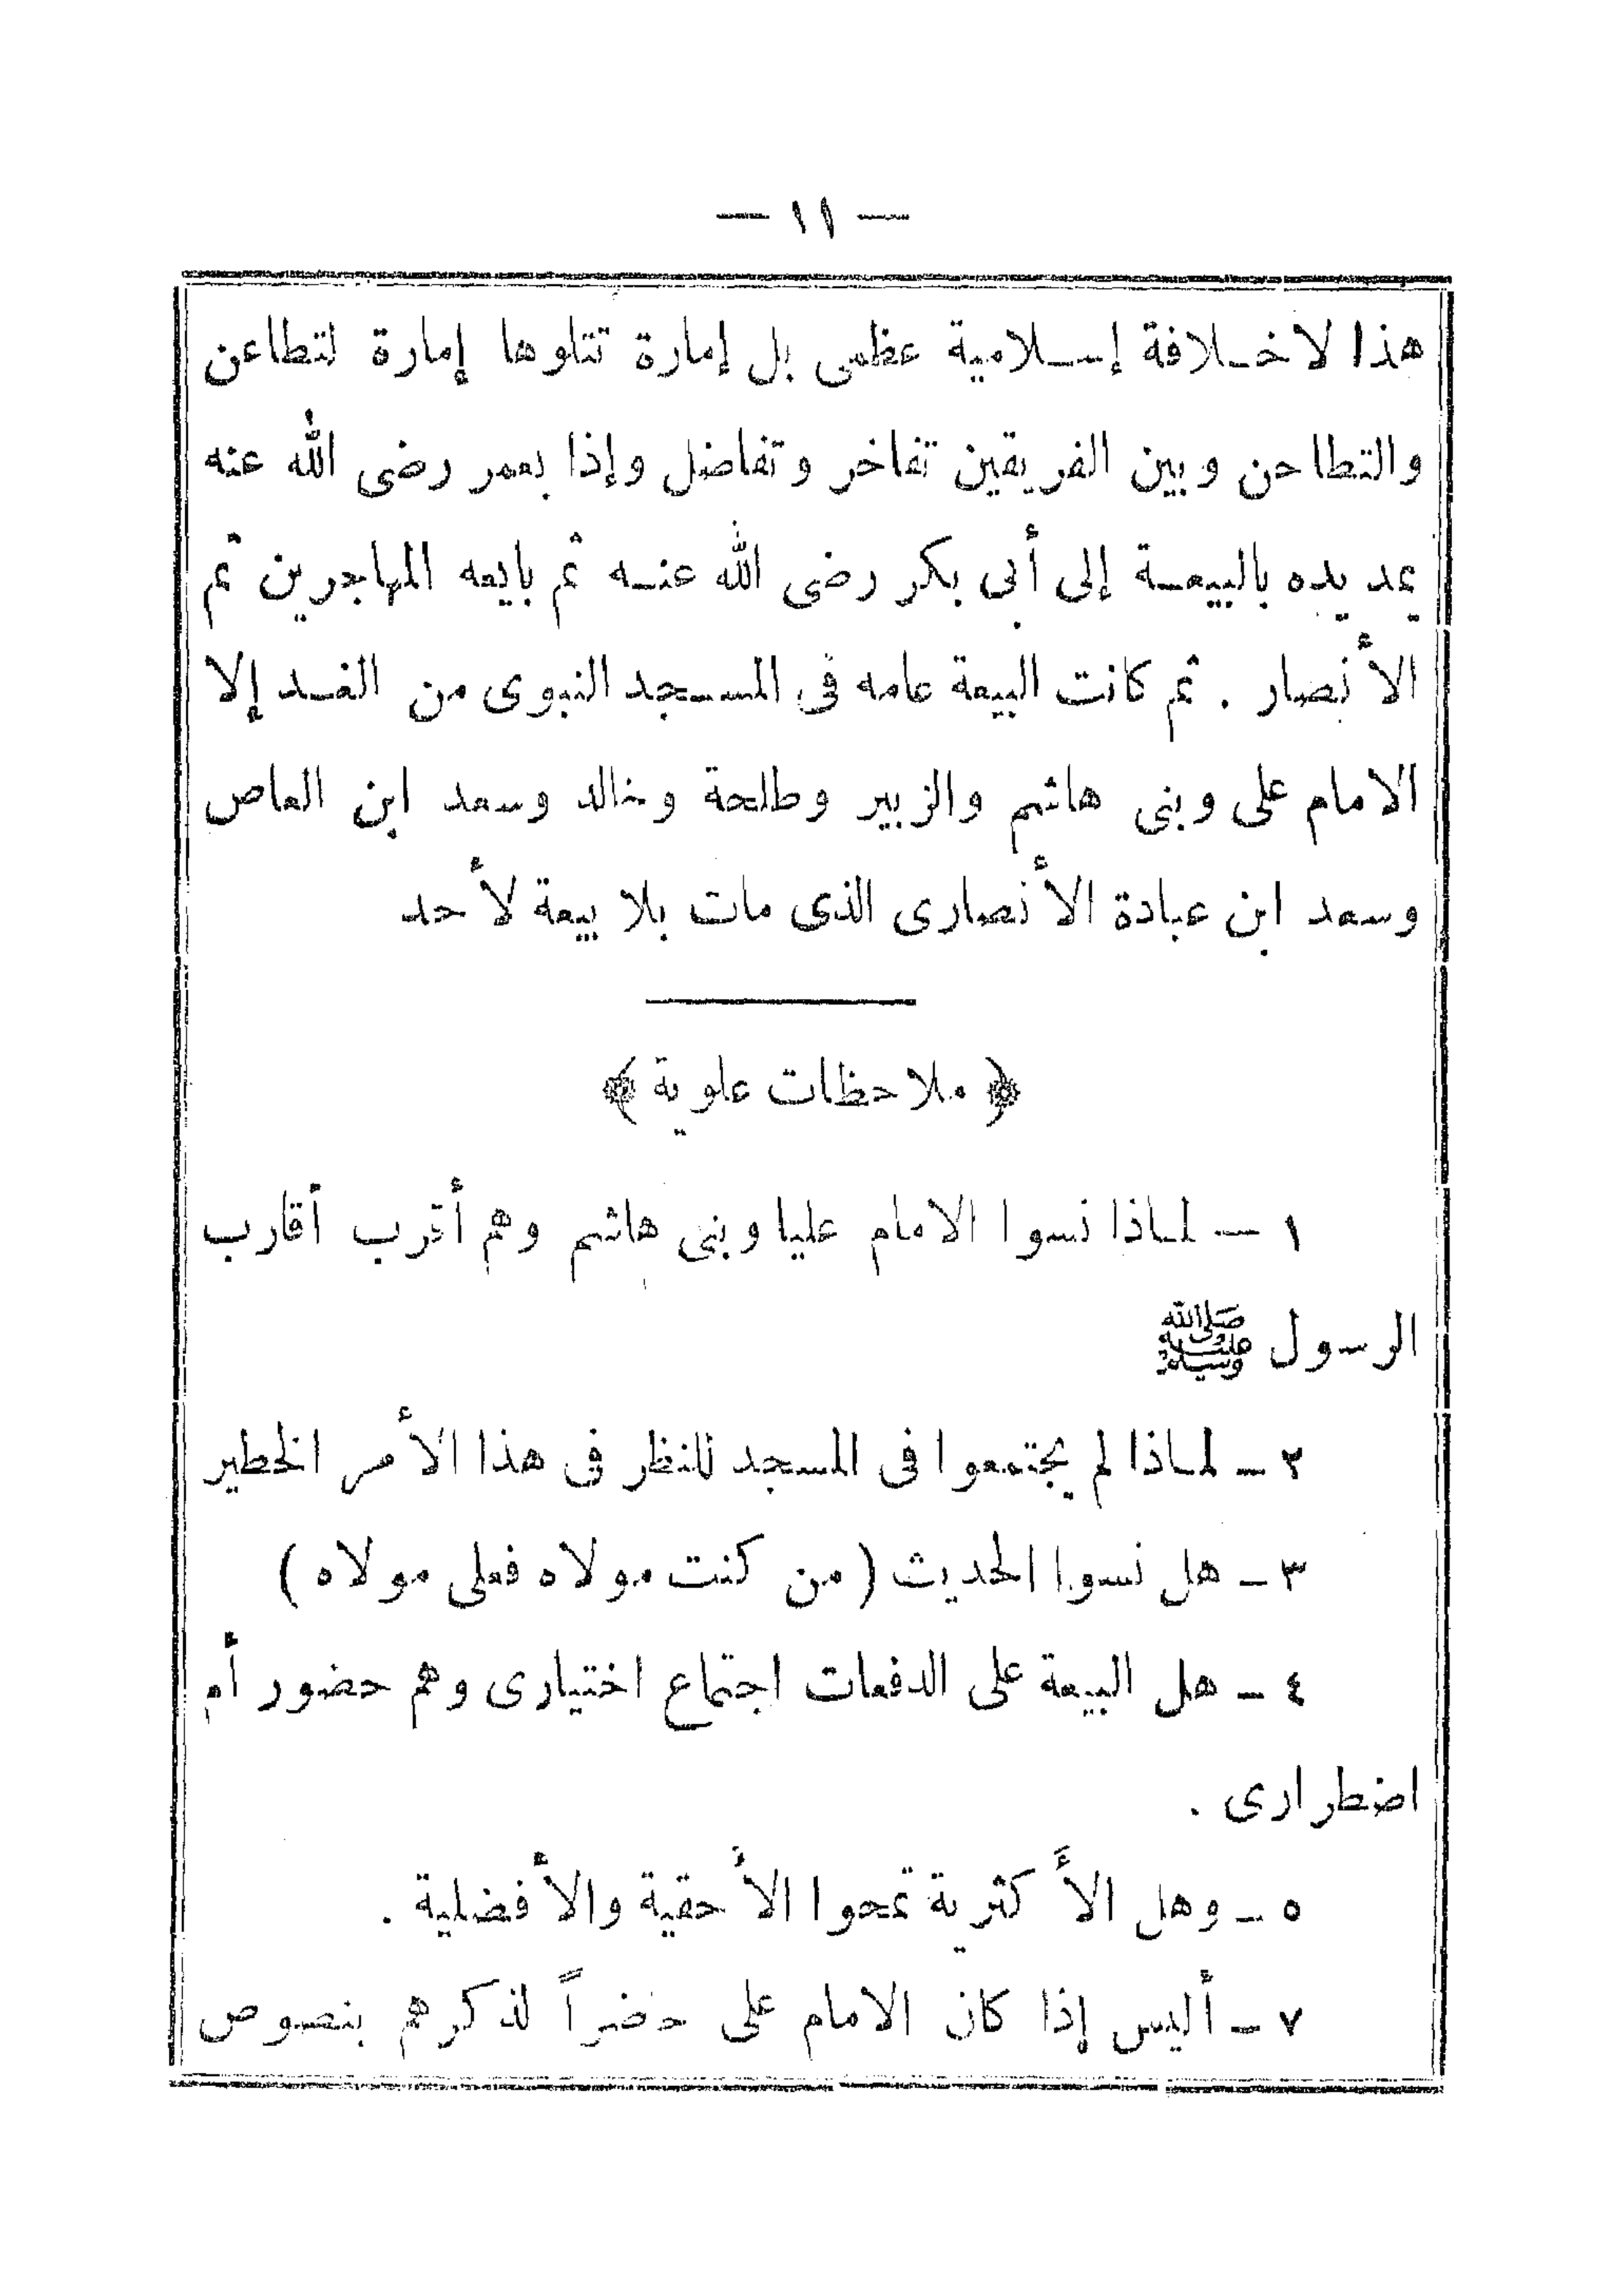 — ١١ —
هذا لا خلافة إسلامية عظمى بل إمارة تتلوها إمارة لتطاعن
والتطاحن وبين الفريقين تفاخر وتفاضل وإذا بعمر رضى الله عنه
يمد يده بالبيعة إلى أبى بكر رضى الله عنه ثم بايعه المهاجرين ثم
الأنصار . ثم كانت البيعة عامه فى المسجد النبوى من الغد إلا
الامام على وبنى هاشم والزبير وطلحة وخالد وسعد ابن العاص
وسعد ابن عبادة الأنصارى الذى مات بلا بيعة لأحد
﴿ ملاحظات علوية ﴾
١ — لماذا نسوا الامام عليا وبنى هاشم وهم أقرب أقارب
الرسول ﷺ
٢ — لماذا لم يجتمعوا فى المسجد للنظر فى هذا الأمر الخطير
٣ — هل نسوا الحديث ( من كنت مولاه فعلى مولاه )
٤ — هل البيعة على الدفعات اجتماع اختيارى وهم حضور أم
اضطرارى .
٥ — وهل الأكثرية تمحوا الأحقية والأفضلية .
٧ — أليس إذا كان الامام على حضراً لذكرهم بنصوص